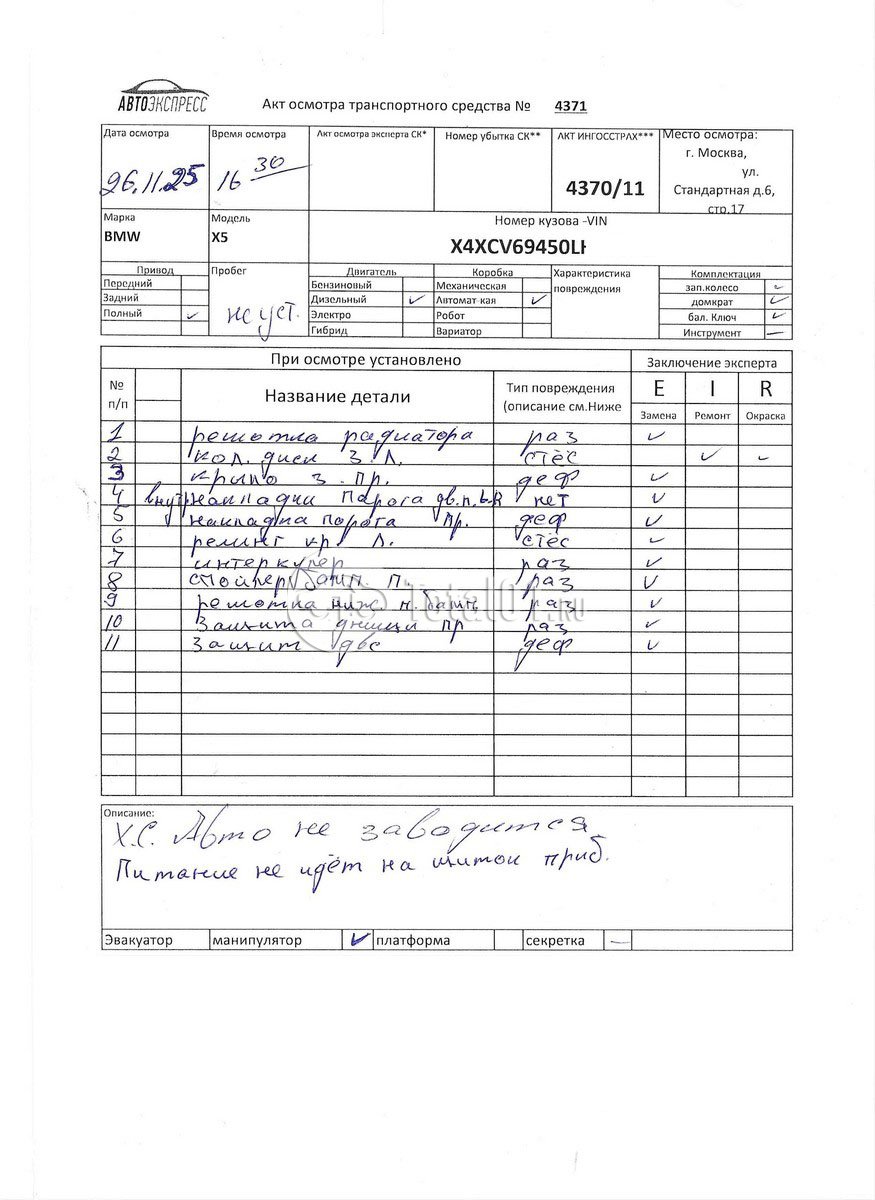 АВТОЭКСПРЕСС
Акт осмотра транспортного средства № 4371
Дата осмотра Время осмотра Акт осмотра эксперта СК* Номер убытка СК** АКТ ИНГОССТРАХ*** Место осмотра:
26.11.25 16 30 4370/11 г. Москва,
ул.
Стандартная д.6,
стр.17
Марка Модель Номер кузова -VIN
BMW X5 X4XCV69450L
Привод Пробег Двигатель Коробка Характеристика повреждения Комплектация
Передний Бензиновый Механическая зап.колесо
Задний Дизельный Автомат-кая домкрат
Полный не уст. Электро Робот бал. Ключ
Гибрид Вариатор Инструмент
При осмотре установлено Заключение эксперта
№ п/п Название детали Тип повреждения (описание см.Ниже E I R
Замена Ремонт Окраска
1 решотка радиатора раз
2 кол. диск З. Л. стёс
3 крыло з. пр. деф
4 внутр накладки порога дв. нет
5 накладка порога пр. деф
6 релинг кр. Л. стёс
7 интеркулер раз
8 бамп. П. раз
9 решотка ниж. бамп. раз
10 Защита днища пр раз
11 Защит двс деф
Total01.RU
Описание:
Х.С. Авто не заводится
Питание не идёт на щиток приб.
Эвакуатор манипулятор платформа секретка